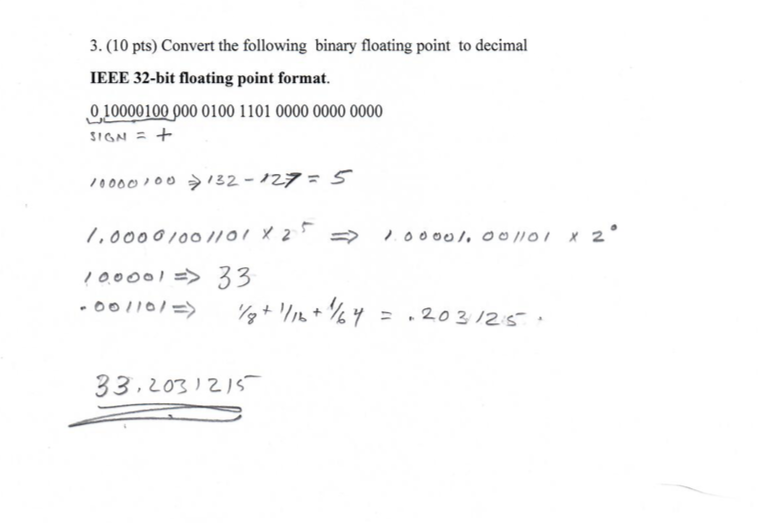 3. (10 pts) Convert the following binary floating point to decimal
IEEE 32-bit floating point format.
0 10000100 000 0100 1101 0000 0000 0000
SIGN = +
10000100 ⇒ 132 - 127 = 5
1.00001001101 x 2^5 ⇒ 1 00001. 001101 x 2^0
100001 ⇒ 33
.001101 ⇒ 1/8 + 1/16 + 1/64 = .203125.
33.203125